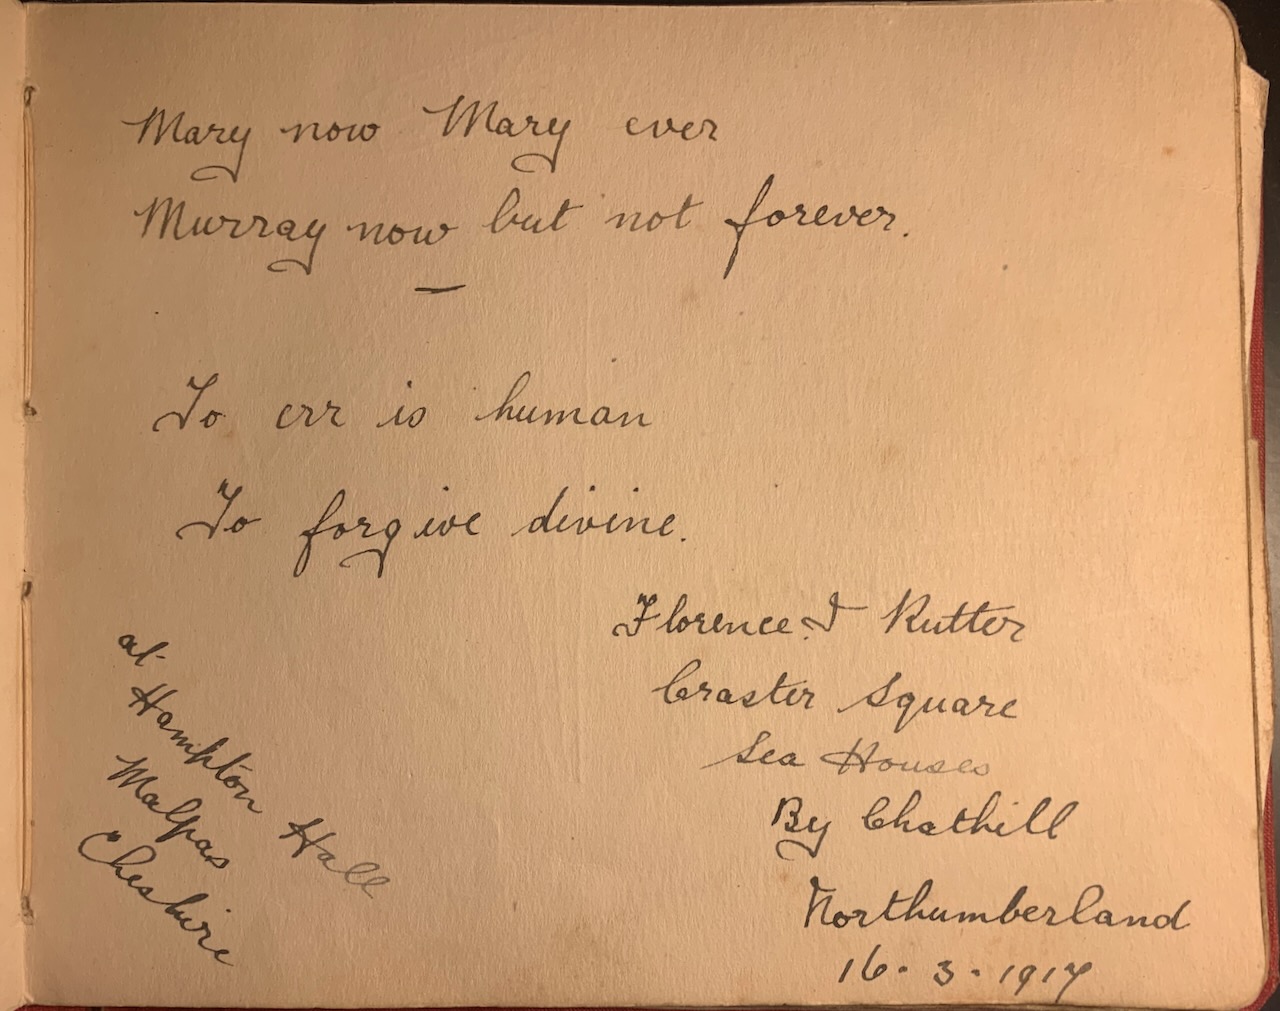 Mary now Mary ever
Murray now but not forever.
To err is human
To forgive divine.
Florence. I Rutter
Craster Square
Sea Houses
By Chathill
Northumberland
16. 3. 1917
at Hampton Hall
Malpas
Cheshire